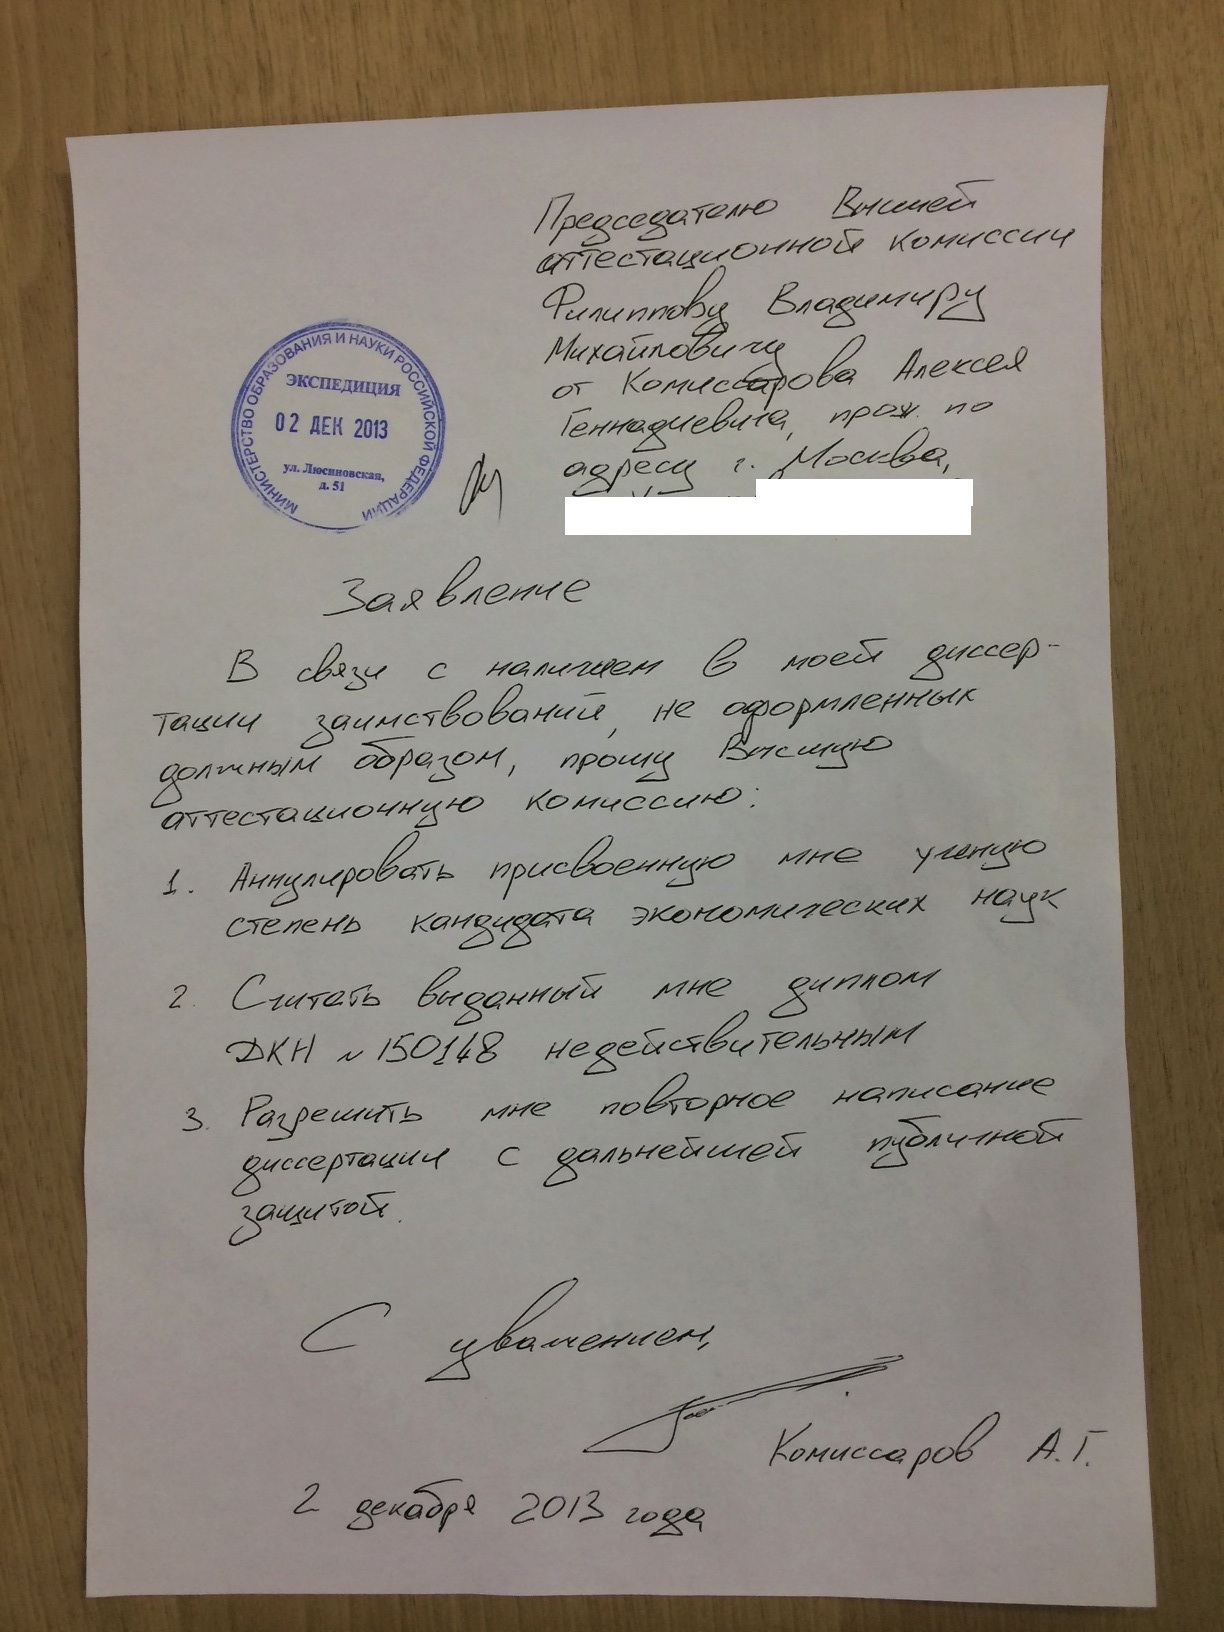 Председателю Высшей
аттестационной комиссии
Филиппову Владимиру
Михайловичу
от Комиссарова Алексея
Геннадиевича, прож. по
адресу г. Москва,
МИНИСТЕРСТВО ОБРАЗОВАНИЯ И НАУКИ РОССИЙСКОЙ ФЕДЕРАЦИИ
ЭКСПЕДИЦИЯ
02 ДЕК 2013
ул. Люсиновская,
д. 51
Заявление
В связи с наличием в моей диссер-
тации заимствований, не оформленных
должным образом, прошу Высшую
аттестационную комиссию:
1. Аннулировать присвоенную мне учёную
степень кандидата экономических наук
2. Считать выданный мне диплом
ДКН № 150148 недействительным
3. Разрешить мне повторное написание
диссертации с дальнейшей публичной
защитой.
С уважением,
Комиссаров А.Г.
2 декабря 2013 года